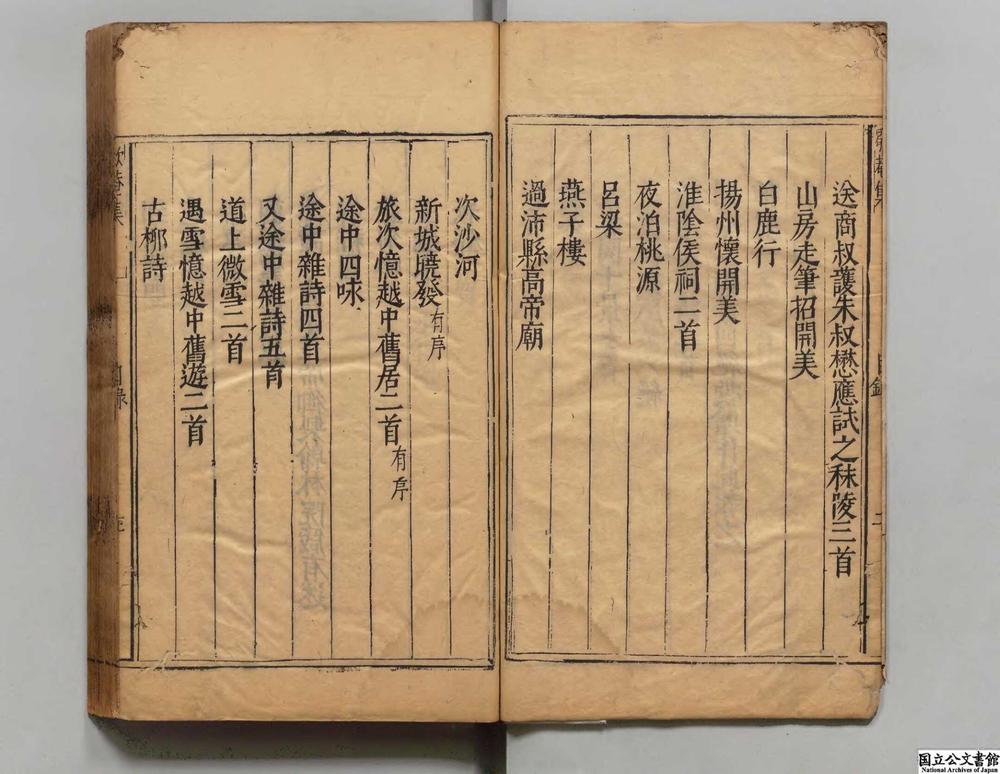 送商叔護朱叔懋應試之秣陵三首
山房走筆招開美
白鹿行
揚州懷開美
淮陰侯祠二首
夜泊桃源
呂梁
燕子樓
過沛縣高帝廟
次沙河
新城曉發有序
旅次憶越中舊居二首有序
途中四咏
途中雜詩四首
又途中雜詩五首
道上微雪二首
遇雪憶越中舊遊二首
古柳詩
歇菴集
目錄
国立公文書館
National Archives of Japan